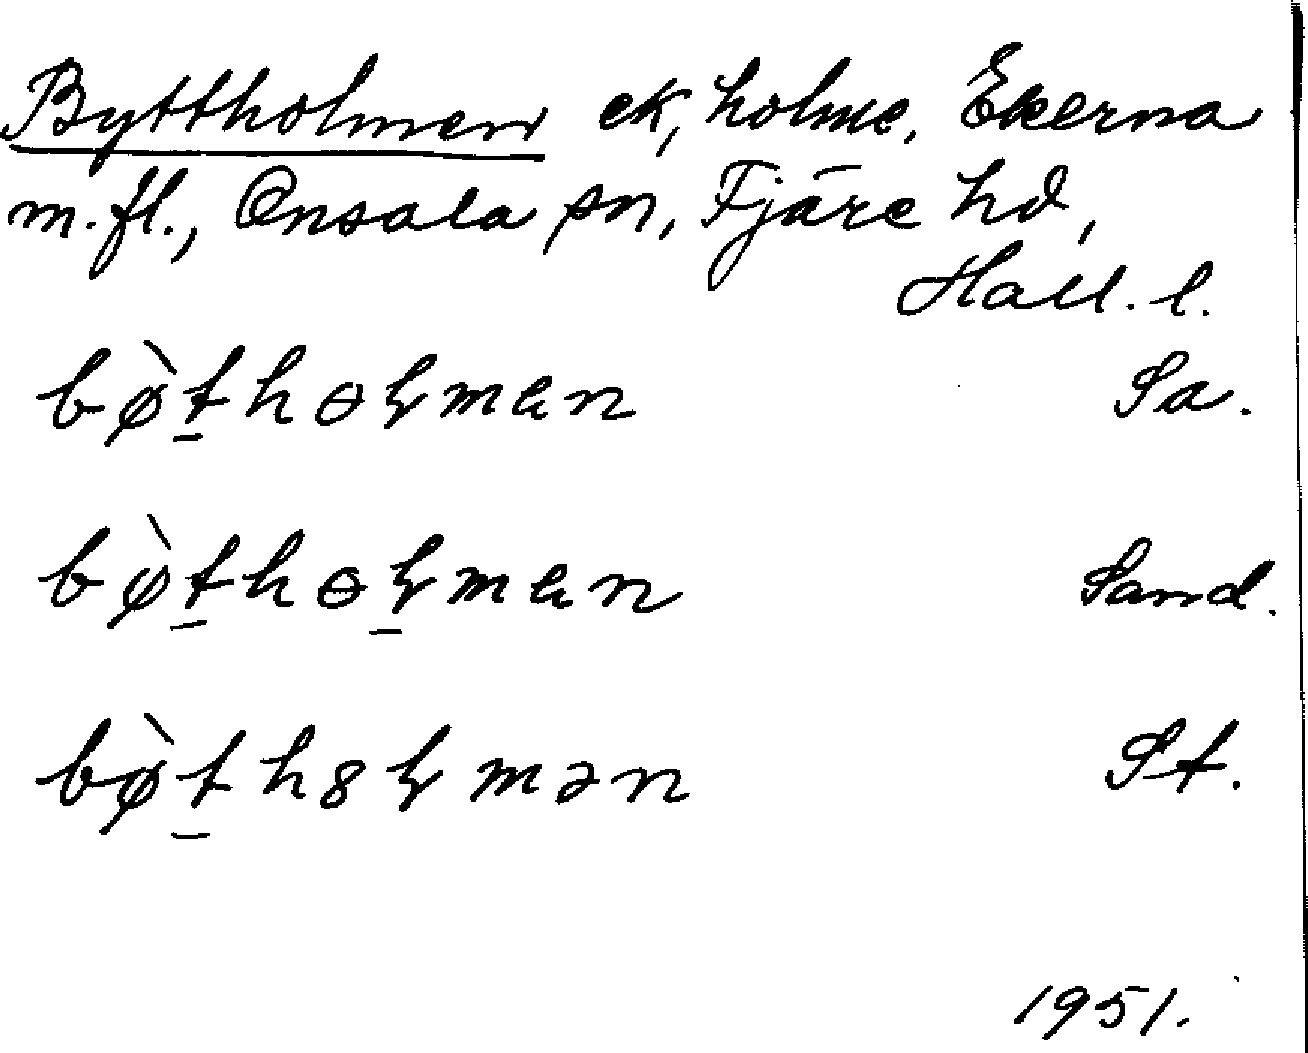 Byttholmen ek, holme, Ekerna
m.fl., Onsala sn, Fjäre hd,
Hall. l.
bø̀t̠hɵɬmen Sa.
bø̀t̠hɵɬ̠men Sand.
bø̀t̠h8ɬmən St.
1951.